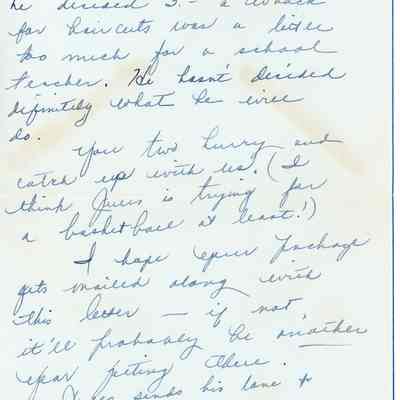 he decided 3.- a whack
for haircuts was a little
too much for a school
teacher. He hasn't decided
definitely what he will
do.
You two hurry and
catch up with us. (I
think Jules is trying for
a basketball at least!)
I hope your package
gets mailed along with
this letter — if not,
it'll probably be another
year getting there.
sends his love to